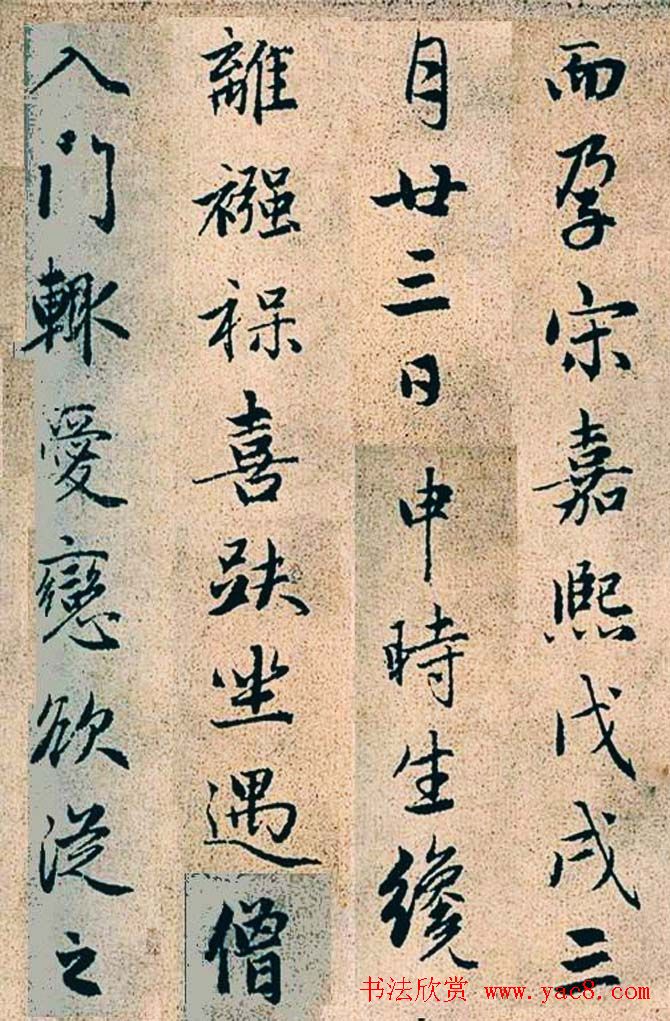 而孕宋嘉熙戊戌三
月廿三日申時生纔
離襁褓喜趺坐遇僧
入門輙愛戀欲從之
书法欣赏 www.yac8.com